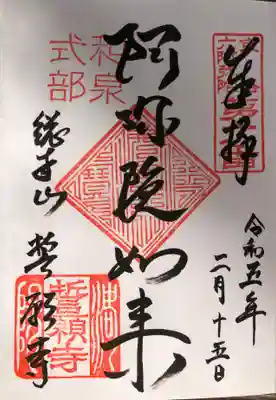 奉拝
令和五年
二月十五日
阿弥陀如来
和泉
式部
総本山 誓願寺
誓願寺